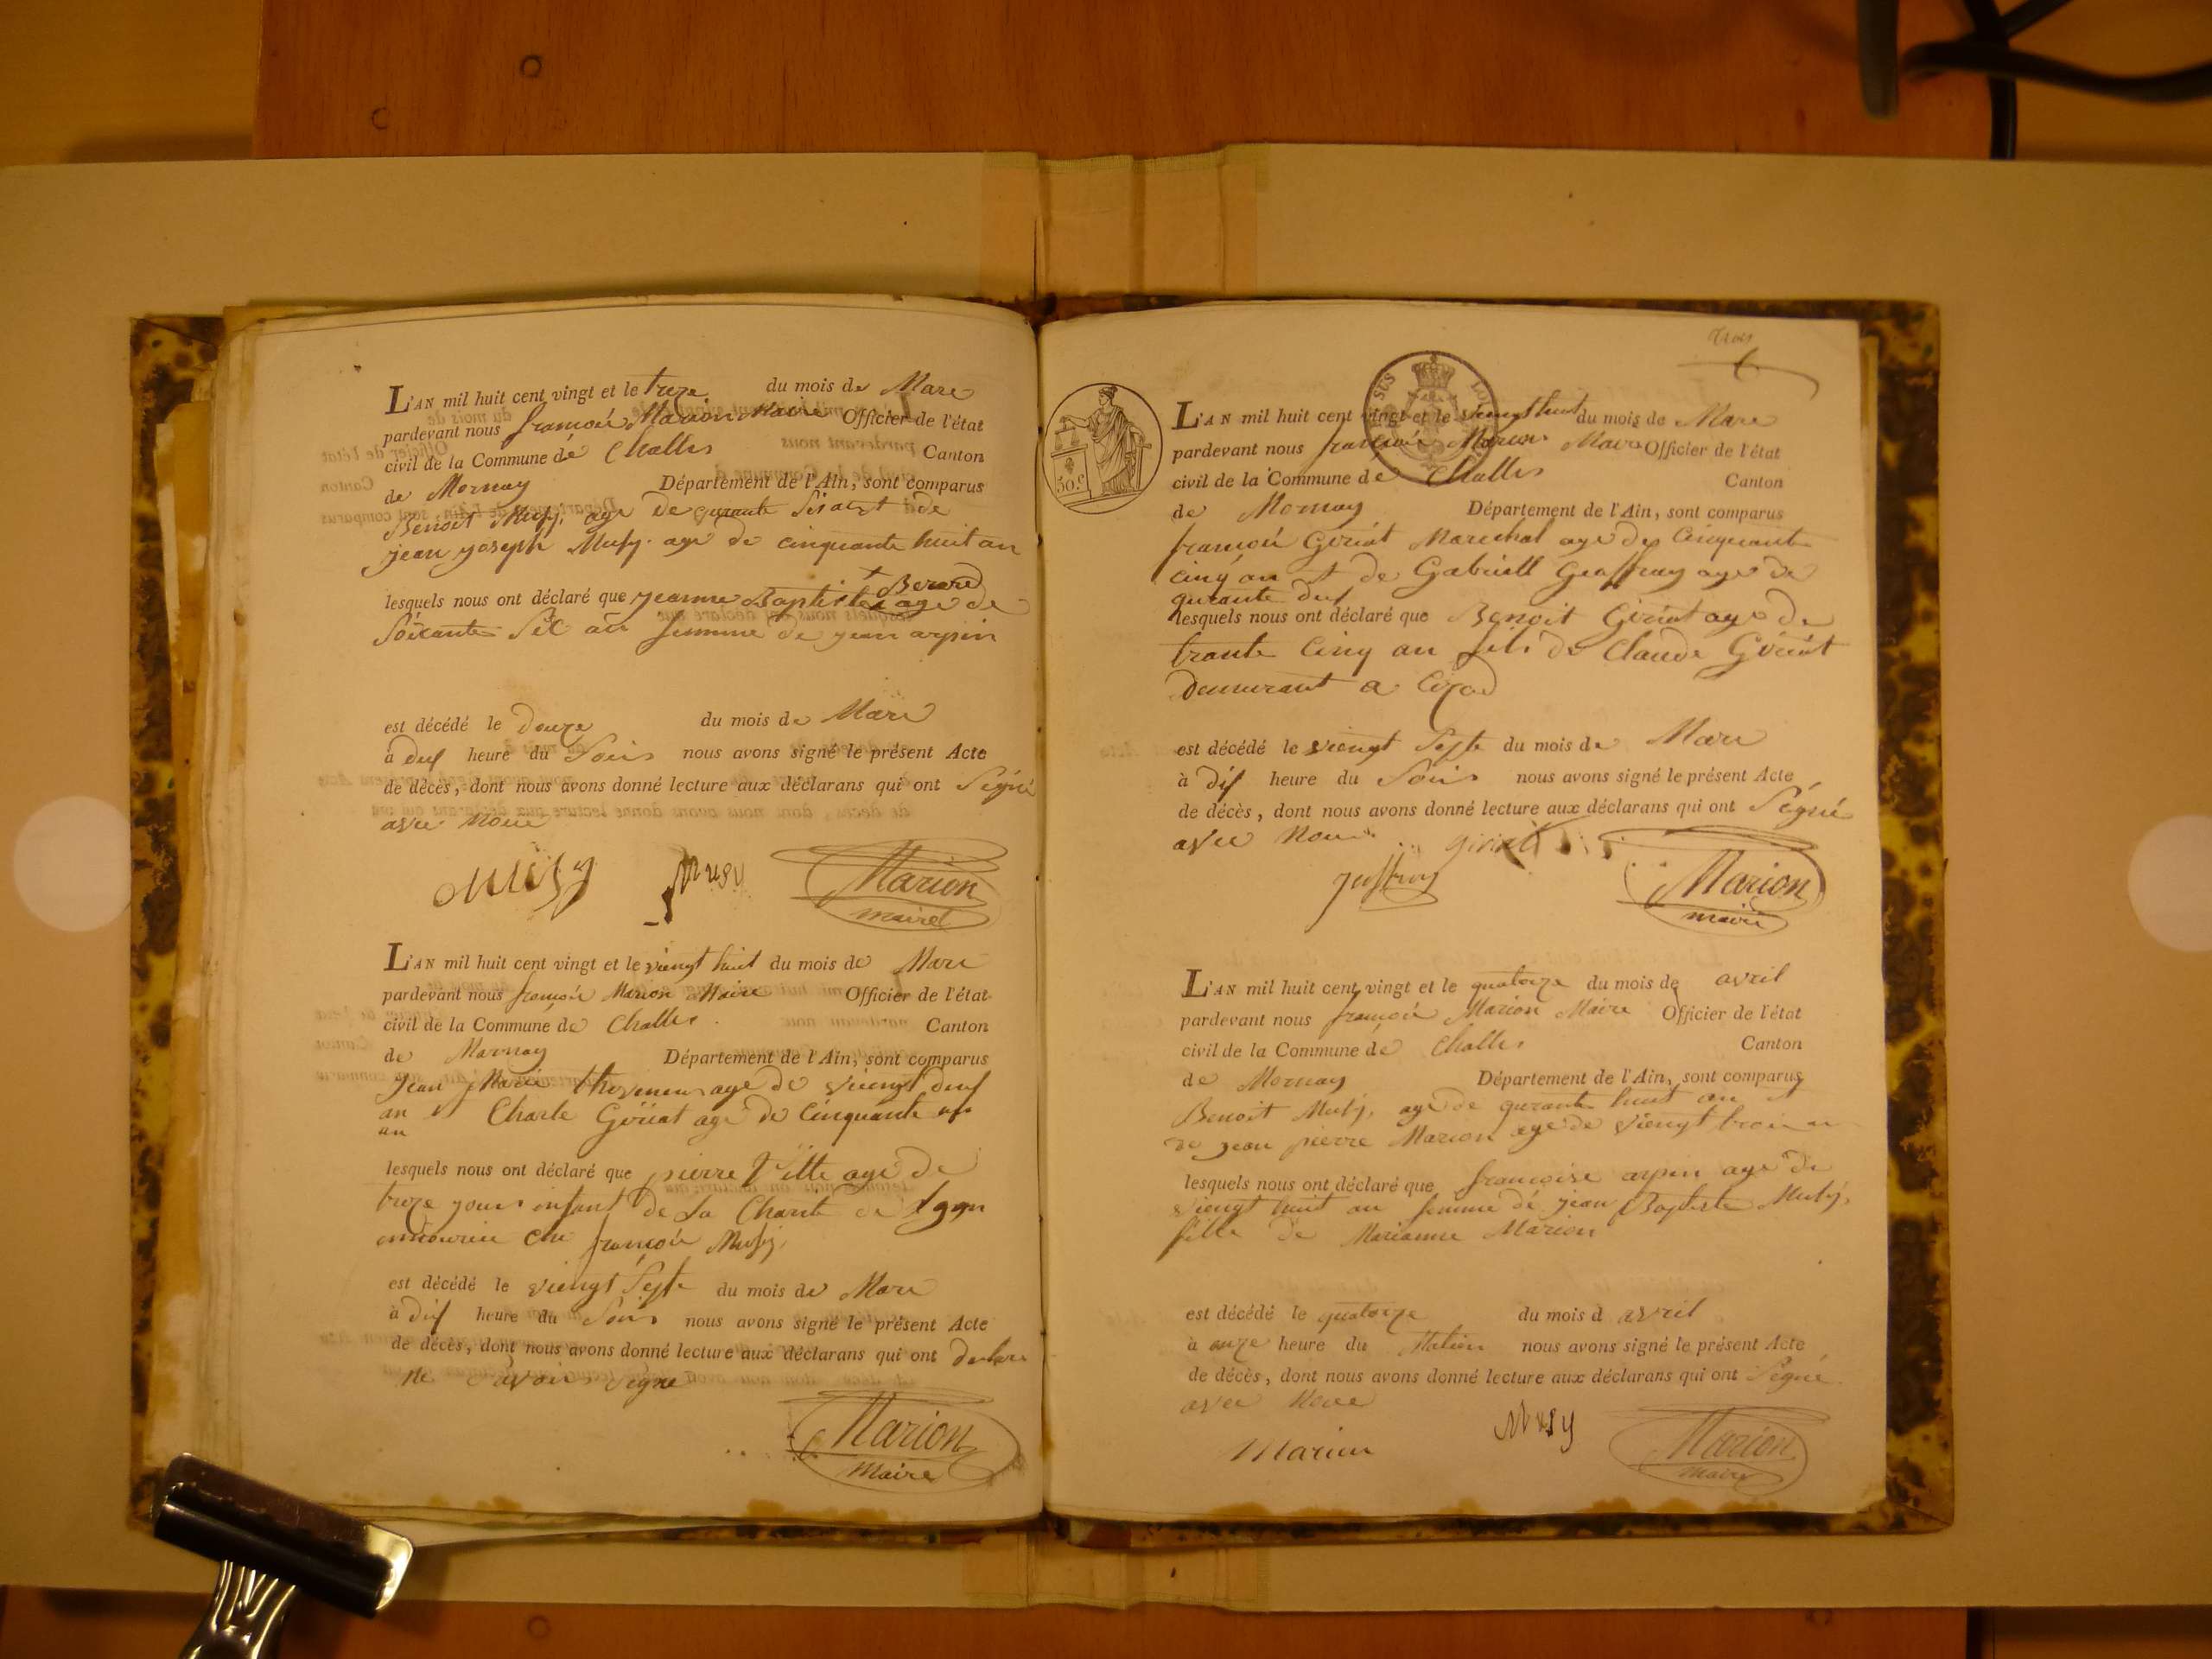 L'AN mil huit cent vingt et le treze du mois de Mars
pardevant nous françois Marion Maire Officier de l'état
civil de la Commune de Challes Canton
de Mornay Département de l'Ain, sont comparus
Benoit Musy, age de qurante Six an et de
jean joseph Musy age de cinquante huit an
+ Berard
lesquels nous ont déclaré que jeanne Baptiste + age de
Soixante Six an femme de jean arpin
est décédé le douze du mois de Mars
à deux heure du Soir nous avons signé le présent Acte
de décès, dont nous avons donné lecture aux déclarans qui ont Signé
avec nous
Musy Musy Marion
maire
L'AN mil huit cent vingt et le viengt huit du mois de Mars
pardevant nous françois Marion Maire Officier de l'état
civil de la Commune de Challes Canton
de Mornay Département de l'Ain, sont comparus
Jean Marie age de viengt deux
an et Charle Giriat age de Cinquante
an
lesquels nous ont déclaré que pierre Fille age de
treze jours enfant de La Charité de Lyon
ennourice che françois Musy,
est décédé le viengt Septe du mois de Mars
à dix heure du Soir nous avons signé le présent Acte
de décès, dont nous avons donné lecture aux déclarans qui ont declare
ne Savoir Signe
Marion
Maire
trois
L'AN mil huit cent vingt et le viengt huit du mois de Mars
pardevant nous françois Marion Maire Officier de l'état
civil de la Commune de Challes Canton
de Mornay Département de l'Ain, sont comparus
françois Giriat Marechal age de Cinquante
cinq an et de Gabriell Geoffray age de
qurante deux
lesquels nous ont déclaré que Benoit Giriat age de
trante Cinq an fils de Claude Giriat
demurant a Cizod
est décédé le viengt Septe du mois de Mars
à dix heure du Soir nous avons signé le présent Acte
de décès, dont nous avons donné lecture aux déclarans qui ont Signé
avec Nous giriat
Marion
maire
50 c
L'AN mil huit cent vingt et le quatorze du mois de avril
pardevant nous françois Marion Maire Officier de l'état
civil de la Commune de Challes Canton
de Mornay Département de l'Ain, sont comparus
Benoit Musy, age de qurante huit an et
de jean pierre Marion age de viengt trois an
lesquels nous ont déclaré que françoise arpin age de
viengt huit an femme de jean Baptiste Musy,
fille de Marianne Marion
est décédé le quatorze du mois d avril
à onze heure du Matin nous avons signé le présent Acte
de décès, dont nous avons donné lecture aux déclarans qui ont Signé
avec Nous
Marion Musy Marion
maire